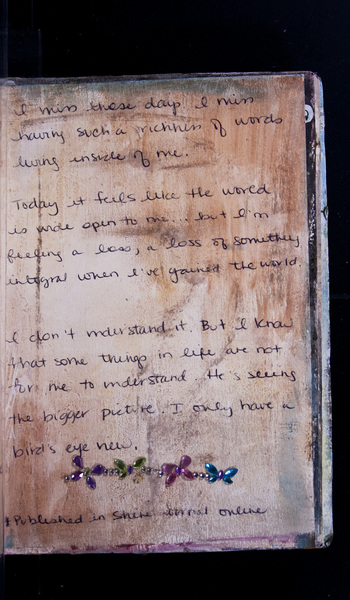 I miss those days. I miss
having such a richness of words
living inside of me.
Today it feels like the world
is wide open to me... but I'm
feeling a loss, a loss of something
integral when I've gained the world.
I don't understand it. But I know
that some things in life are not
for me to understand. He's seeing
the bigger picture. I only have a
bird's eye view.
*Published in Shine Journal online